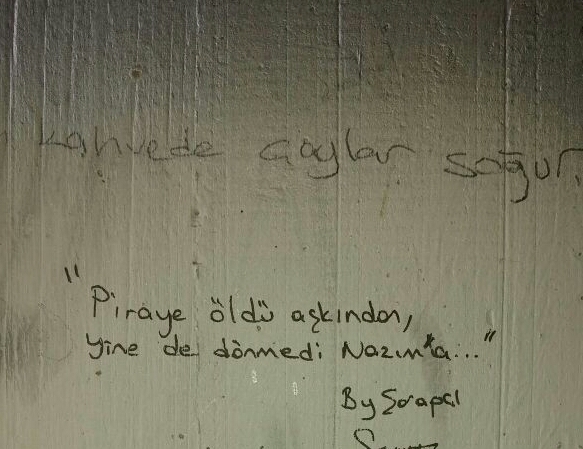 kahvede çaylar soğur.
"Piraye öldü aşkından,
yine de dönmedi Nazım'a..."
By